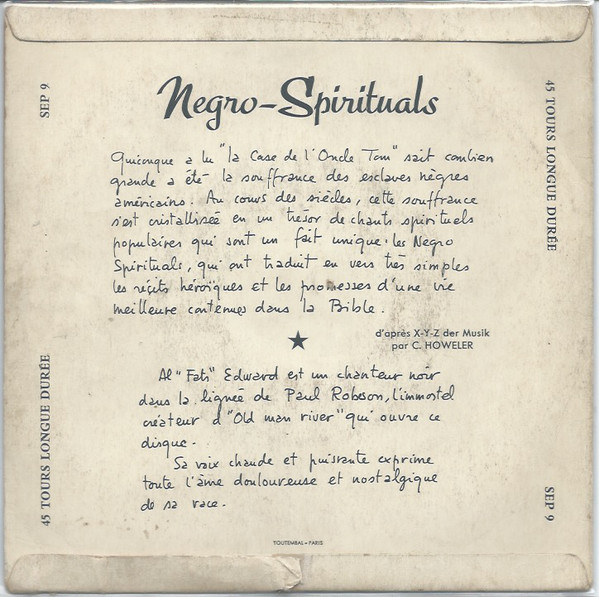 Negro-Spirituals
SEP 9
45 TOURS LONGUE DURÉE
Quiconque a lu "la Case de l'Oncle Tom" sait combien
grande a été la souffrance des esclaves nègres
américains. Au cours des siècles, cette souffrance
s'est cristallisée en un trésor de chants spirituels
populaires qui sont un fait unique. les Negro
Spirituals, qui ont traduit en vers très simples
les récits héroïques et les promesses d'une vie
meilleure contenues dans la Bible.
d'après X-Y-Z der Musik
par C. HOWELER
Al "Fats" Edward est un chanteur noir
dans la lignée de Paul Robeson, l'immortel
créateur d'"Old man river" qui ouvre ce
disque.
Sa voix chaude et puissante exprime
toute l'âme douloureuse et nostalgique
de sa race.
45 TOURS LONGUE DURÉE
SEP 9
TOUTEMBAL - PARIS